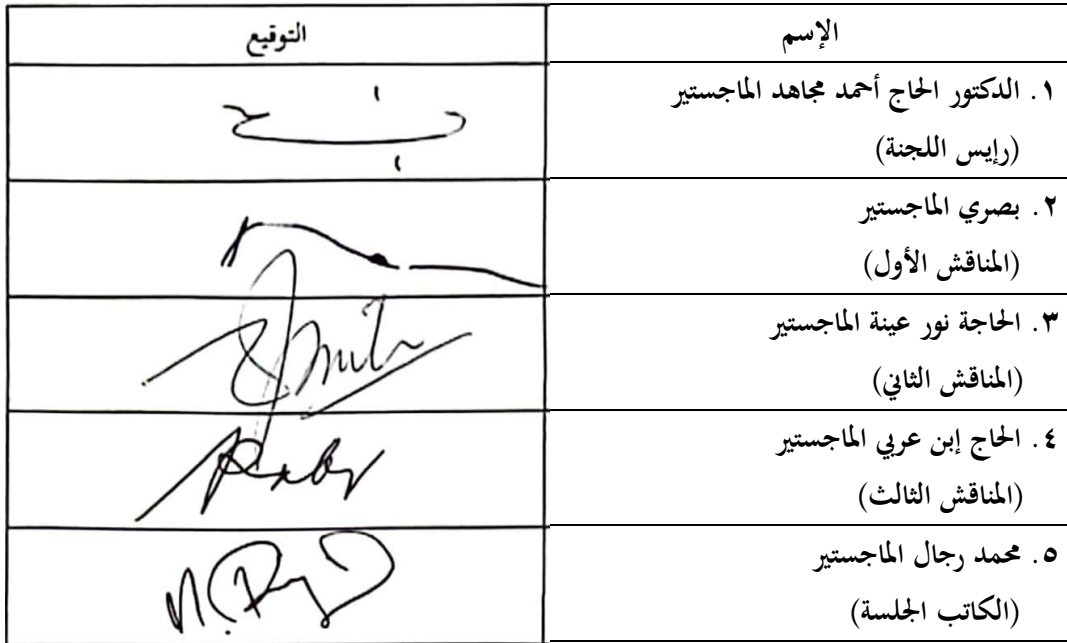 الإسم
التوقيع
١. الدكتور الحاج أحمد مجاهد الماجستير
(رايس اللجنة)
٢. بصري الماجستير
(المناقش الأول)
٣. الحاجة نور عينة الماجستير
(المناقش الثاني)
٤. الحاج إبن عربي الماجستير
(المناقش الثالث)
٥. محمد رجال الماجستير
(الكاتب الجلسة)